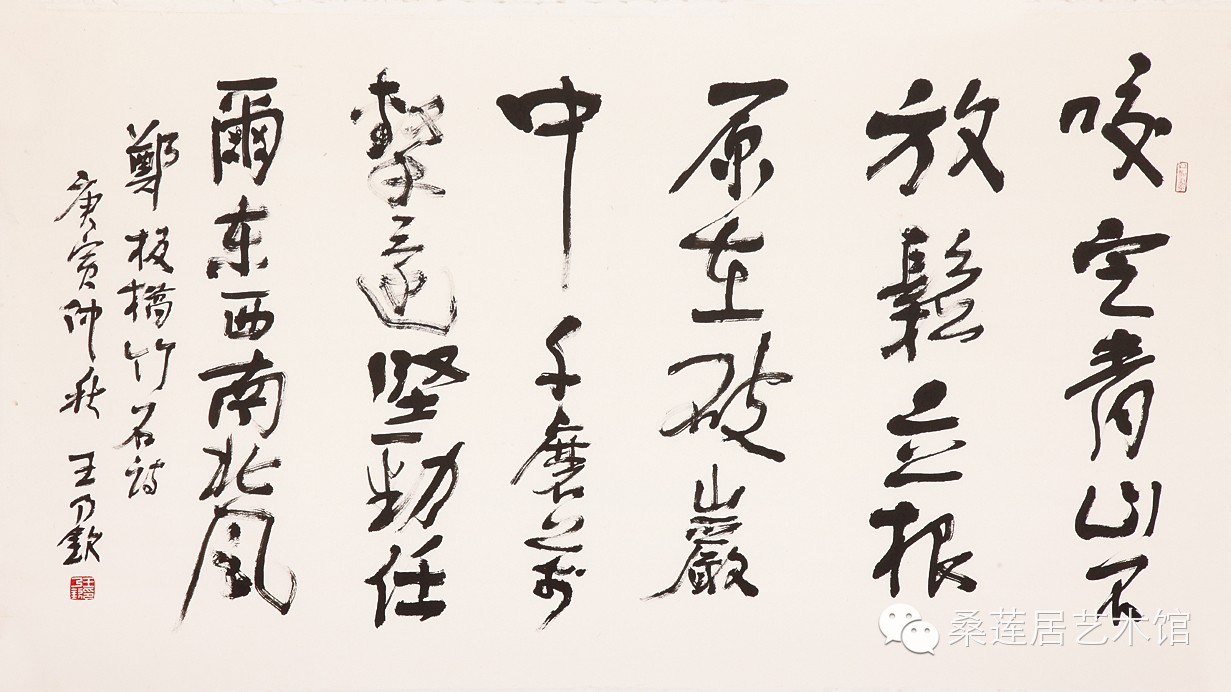 咬定青山不
放鬆立根
原在破巖
中千磨萬
擊還坚勁任
爾东西南北風
鄭板橋竹石詩
庚寅仲秋 王乃欽
桑莲居艺术馆